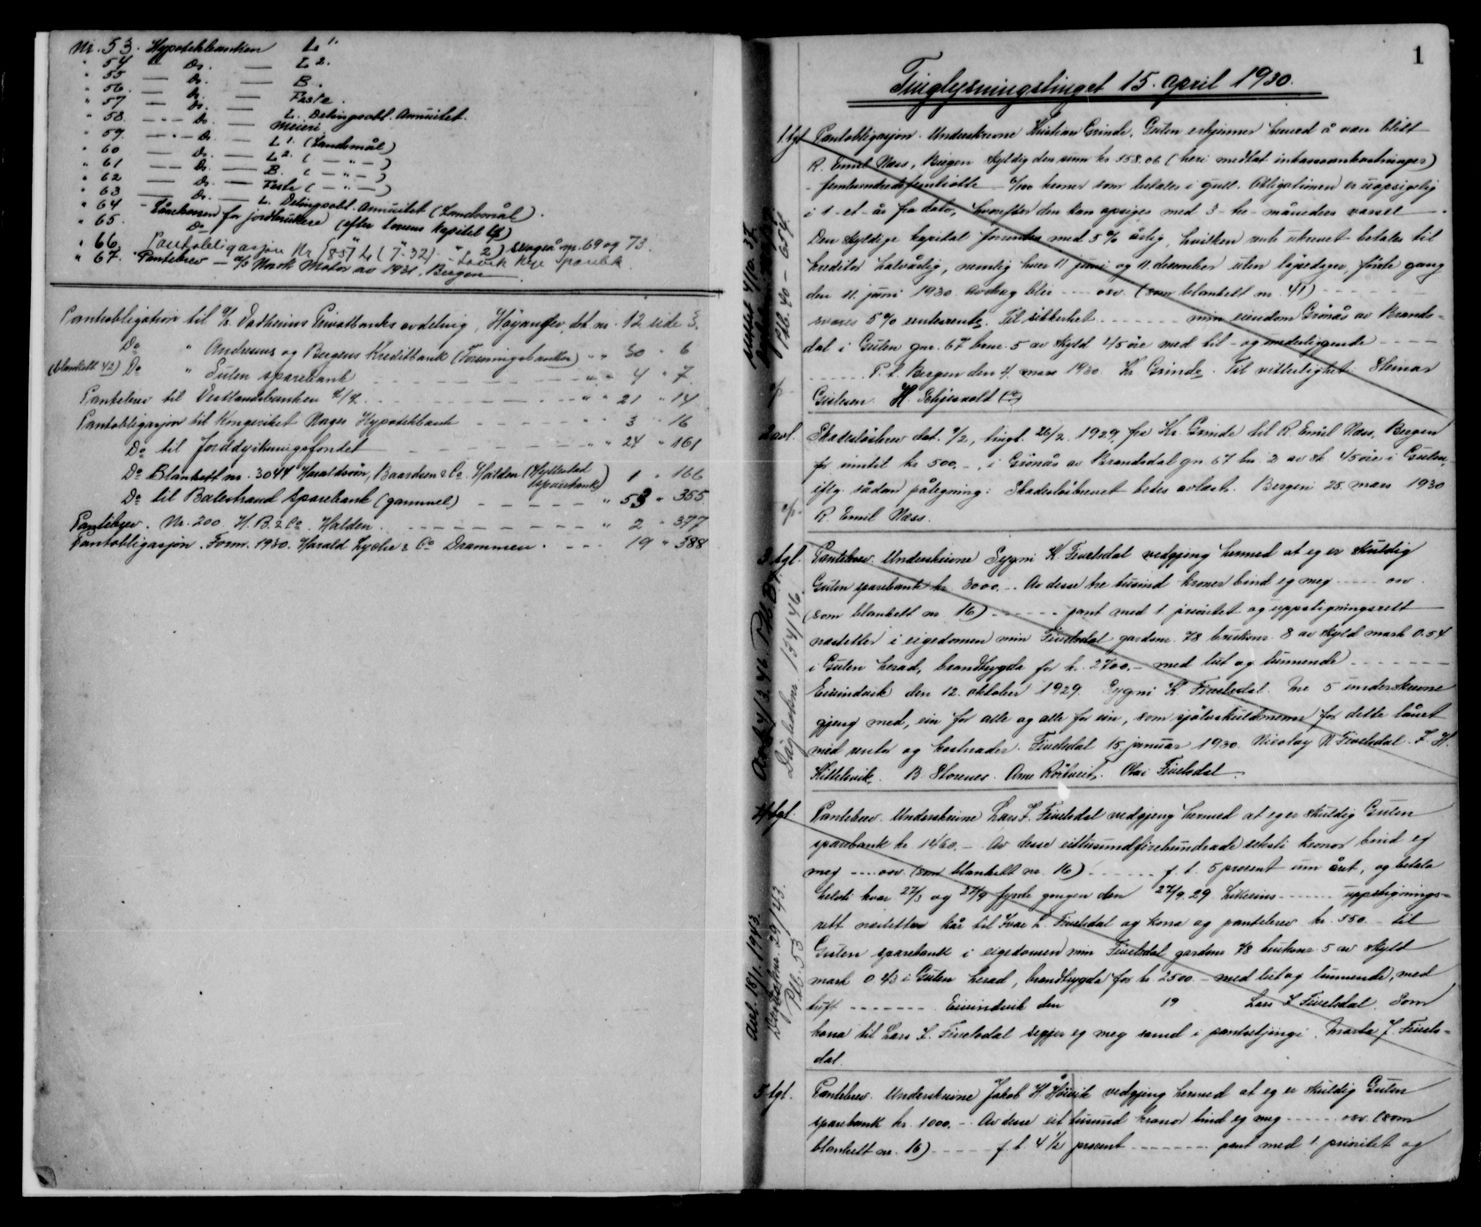 Nr. 53. Hypotekbanken L 1.
" 54 — Do. — L 2.
" 55 — Do. — B.
" 56. — Do. — Feste.
" 57 — Do. — L. Delingsobl. Annuitet.
" 58. — Do. Meieri
" 59. — Do. — L 1. (Landsmål)
" 60 — Do. — L 2. ( — " — )
" 61 — Do. — B. ( — " — )
" 62 — Do. — Feste ( — " — )
" 63 — Do. — L. Delingsobl. Annuitet (Landsmål).
" 64 - Lånekassen for jordbrukere (etter lovens kapitel
" 65. Do
" 66. Pantobligasjon Nr 8 side nr. 69 og 73.
" 67. Pantebrev — A/S Norsk Motor av 1931, Bergen
Pantobligation til A/S Vadheims Privatbanks avdeling, Høyanger, bl. nr. 12 side 3.
Do " Andresens og Bergens Kreditbank (Foreningsbanken) " " 30 " 6
(blankett 42) Do " Gulen sparebank " " 4 " 7.
Pantebrev til Vestlandsbanken A/S. " " 21 " 14
Pantobligasjon til Kongeriket Norges Hypotekbank - - - - 3 " 16
Do til Jorddyrkningsfondet " " 24 " 161
Do Blankett nr. 3044 Haraldsson, Baarden & Co. Halden (Hyllestad sparebank) 1 " 166
Do til Balestrand Sparebank (gammel) - - - - - " 53 " 355
Pantebrev. Nr. 200. H. B. & Co. Halden. - - - - - - " 2 " 377
Pantobligasjon. Form. 1930. Harald Lyche & Co Drammen. - - - 19 " 388
1
Tinglysningstinget 15. april 1930.
1 tgl. Pantobligasjon. Underskrevne Kristian Grinde, Gulen erkjenner herved å være blitt
R. Emil Næss, Bergen skyldig den sum kr. 558.06 (heri medtat inkassoomkostninger)
- femhundredefemtiåtte 6/100 kroner som betales i gull. Obligationen er uopsigelig
i 1 - et - år fra dato, hvorefter den kan opsiges med 3 - tre - måneders varsel
Den skyldige kapital forrentes med 5 % årlig, hvilken rente ukrevet betales til
kreditor halvårlig, nemlig hver 11 juni og 11 desember uten løpedager, første gang
den 11 juni 1930. Avdrag blir - - - osv. (som blankett nr. 41) - - - -
svares 5 % rentersrente. Til sikkerhet - - - - - min eiendom Grönås av Brands=
dal i Gulen gnr. 67 brnr. 5 av skyld 45 øre med til- og underliggende - - -
- - - P. t. Bergen den 11. mars 1930. Kr. Grinde. Til vitterlighet: Steinar
Gulesen. H. Schjesvold
2 avl. Skadesløsbrev dat. 7/2, tingl. 26/2. 1929, fra Kr. Grinde til R. Emil Næss, Bergen
for inntil kr. 500.- i Grönås av Brandsdal gn. 67 br. 2 av sk. 45 öre i Gulen,
iflg. sådan påtegning: Skadesløsbrevet bedes avlæst. Bergen 25. mars 1930
R. Emil Næss.
3 tgl. Pantebrev. Underskrivne Sygni K. Fivelsdal vedgjeng hermed at eg er skuldig
Gulen sparebank kr. 3000.- Av desse tre tusund kroner bind eg meg - - - osv.
(som blankett nr. 16) - - - - - pant med 1. prioritet og uppstigningsrett
nestetter i eigedomen min Fivelsdal gardsnr. 78 bruksnr. 8 av skyld mark 0.54
i Gulen herad, brandtrygda for kr. 2700,- med lut og lunnende - - - -
Eivindvik den 12. oktober 1929. Sygni K. Fivelsdal. Me 5 underskrivne
gjeng med, ein for alle og alle for ein, som sjølvskuldnarar for dette lånet
med renter og kostnader. Fivelsdal 15. januar 1930. Nicolay N Fivelsdal. J. H.
Kittelsvik. B. Storenes. Arne Röitveit. Olai Fivelsdal.
4 tgl. Pantebrev. Underskrivne Lars I. Fivelsdal vedgjeng hermed at eg er skuldig Gulen
sparebank kr 1460.- Av desse eittusundfirehundrade seksti kronor bind eg
meg - - - osv. (som blankett nr. 16) - - - f. t. 5 prosent um året, og betala
helvti kvar 27/3 og 27/9 fyrste gongen den 27/9. 29 - - - - uppstignings=
rett nestetter kår til Ivar L. Fivelsdal og kona og pantebrev kr. 550.- til
Gulen sparebank i eigedomen min Fivelsdal gardsnr. 78 bruksnr. 5 av skyld
mark 0.43 i Gulen herad, brandtrygda for kr 2500 - med lut og lunnende, med
tuft - - - - - Eivindvik den 19 Lars I. Fivelsdal. Som
kona til Lars I. Fivelsdal segjer eg meg samd i pantsetjingi. Marta J. Fivels=
dal.
5 tgl. Pantebrev. Underskrivne Jakob H Håvik vedgjeng hermed at eg er skuldig Gulen
sparebank kr. 1000.- Av desse eit tusund kronor bind eg meg - - - - osv. (som
blankett nr. 16) - - - - f. t. 4 1/2 prosent - - - - - pant med 1 prioritet og
slettet 4/10. 37.
Pb. 40 - 654.
Avl. 4/3. 46. Pb. 57.
Dagboknr 134/46.
Avl. 18/1. 1943.
Dagboknr. 29/43.
Pb. 53